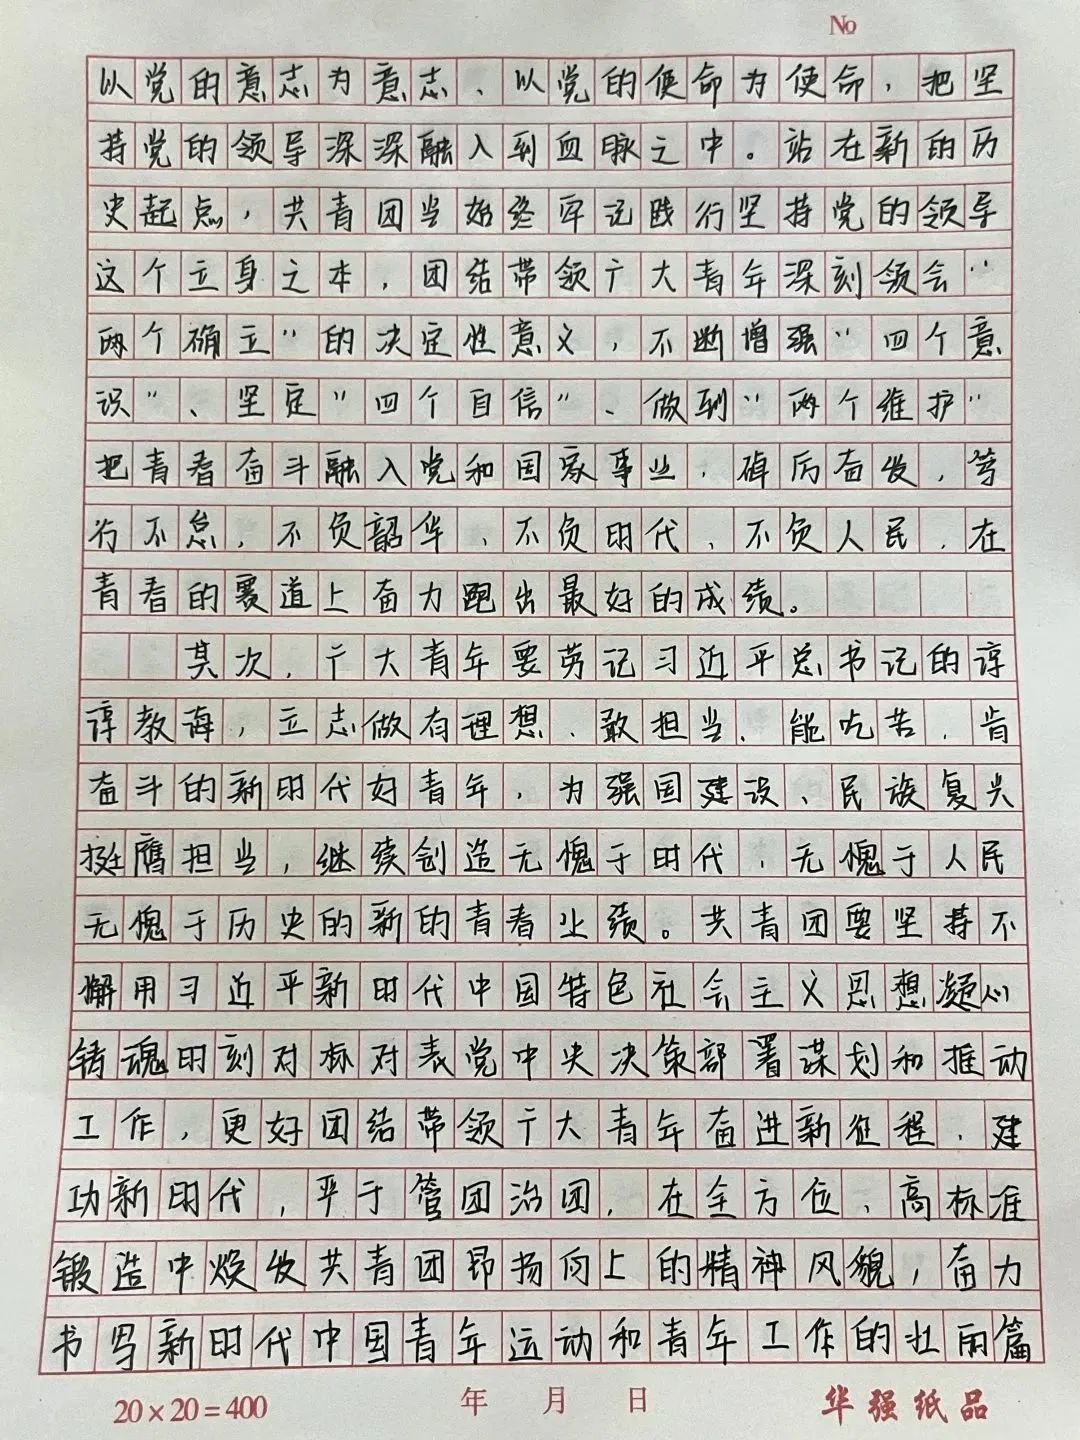 No
以党的意志为意志、以党的使命为使命，把坚
持党的领导深深融入到血脉之中。站在新的历
史起点，共青团当始终牢记践行坚持党的领导
这个立身之本，团结带领广大青年深刻领会“
两个确立”的决定性意义，不断增强“四个意
识”、坚定“四个自信”、做到“两个维护”
把青春奋斗融入党和国家事业，踔厉奋发，笃
行不怠，不负韶华、不负时代、不负人民，在
青春的赛道上奋力跑出最好的成绩。
其次，广大青年要劳记习近平总书记的谆
谆教诲，立志做有理想、敢担当、能吃苦、肯
奋斗的新时代好青年，为强国建设、民族复兴
挺膺担当，继续创造无愧于时代，无愧于人民
无愧于历史的新的青春业绩。共青团要坚持不
懈用习近平新时代中国特色社会主义思想凝心
铸魂时刻对标对表党中央决策部署谋划和推动
工作，更好团结带领广大青年奋进新征程、建
功新时代，严于管团治团，在全方位、高标准
锻造中焕发共青团昂扬向上的精神风貌，奋力
书写新时代中国青年运动和青年工作的壮丽篇
20×20=400 年 月 日 华强纸品